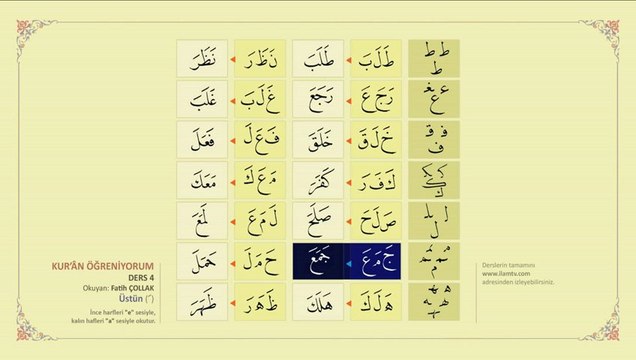 ط ط ط طَ لَ بَ طَلَبَ نَ ظَ رَ نَظَرَ
رَ جَ عَ رَجَعَ غَ لَ بَ غَلَبَ
خَ لَ قَ خَلَقَ فَ عَ لَ فَعَلَ
كَ فَ رَ كَفَرَ مَ عَ كَ مَعَكَ
صَ لَ حَ صَلَحَ لَ مَ عَ لَمَعَ
جَ مَ عَ جَمَعَ حَ مَ لَ حَمَلَ
هَ لَ كَ هَلَكَ ظَ هَ رَ ظَهَرَ
KUR'ÂN ÖĞRENİYORUM
DERS 4
Okuyan: Fatih ÇOLLAK
Üstün (َ)
İnce harfleri "e" sesiyle,
kalın hafleri "a" sesiyle okutur.
Derslerin tamamını
www.ilamtv.com
adresinden izleyebilirsiniz.